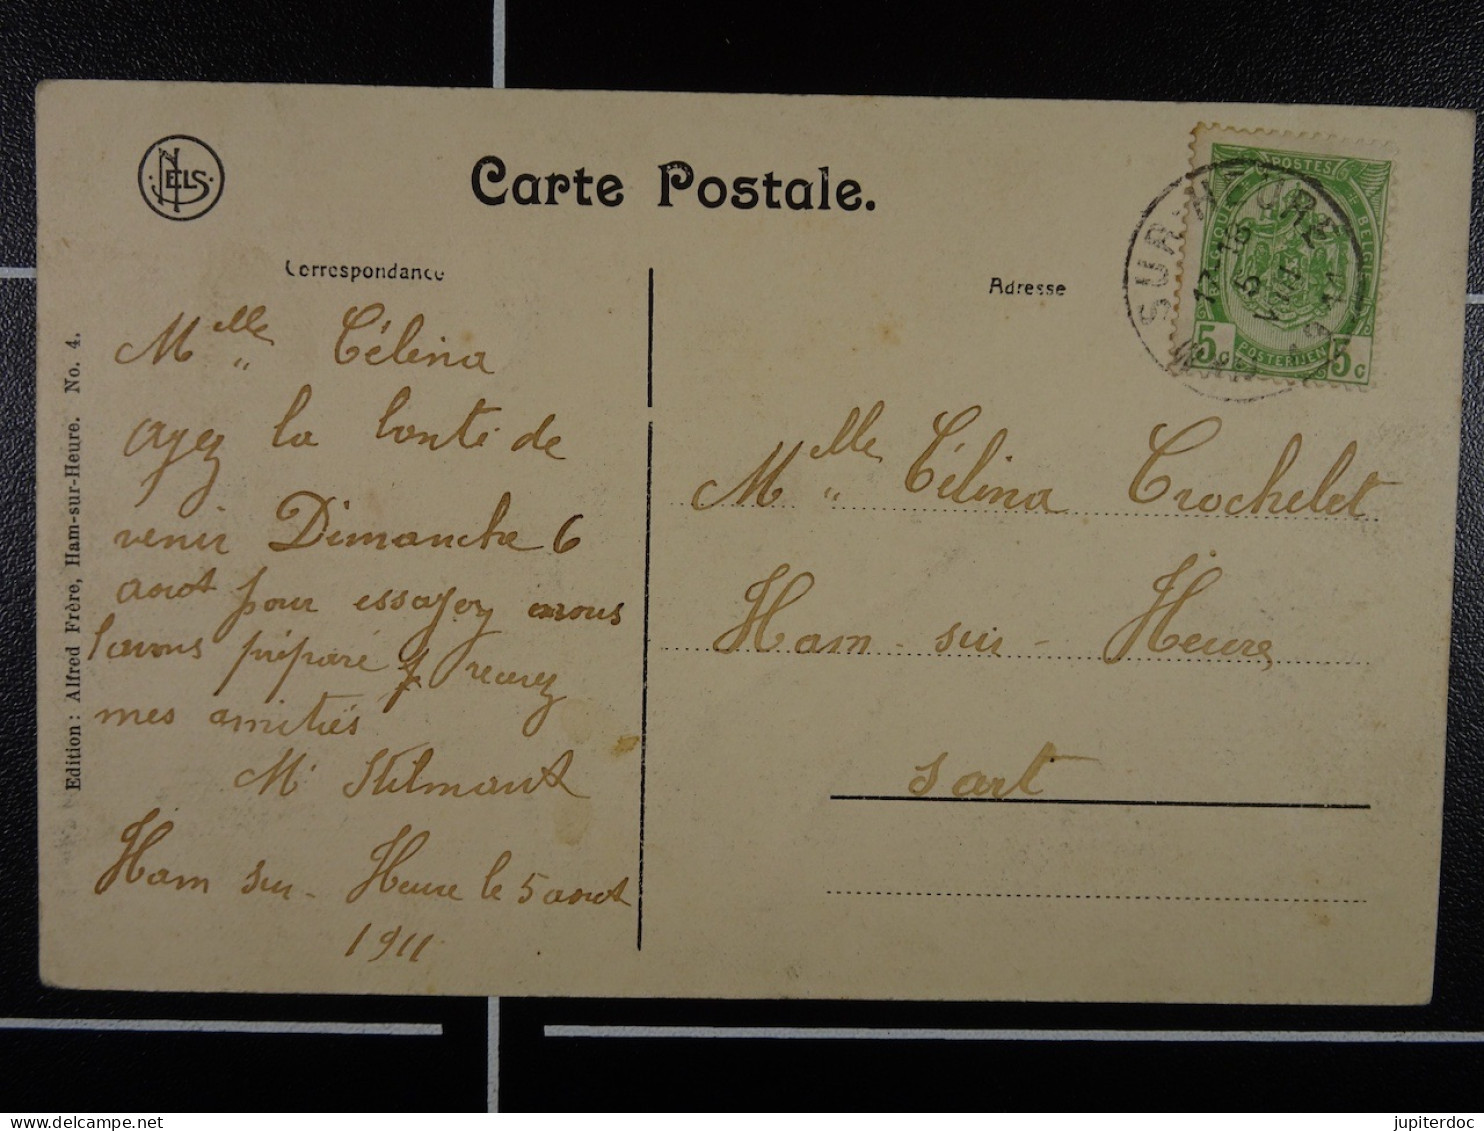 NELS
Carte Postale.
Correspondance
Adresse
Edition : Alfred Frère, Ham-sur-Heure. No. 4.
POSTES
BELGIQUE
BELGIE
5c POSTERIJEN 5c
SUR-HEURE
5 VIII
Mlle Célina
ayez la bonté de
venir Dimanche 6
août pour essayer nous
l'avons préparé recevez
mes amitiés
M Stilmant
Ham sur - Heure le 5 août
1911
Mlle Célina Crochelet
Ham - sur - Heure
Sart
jupiterdoc
www.delcampe.net